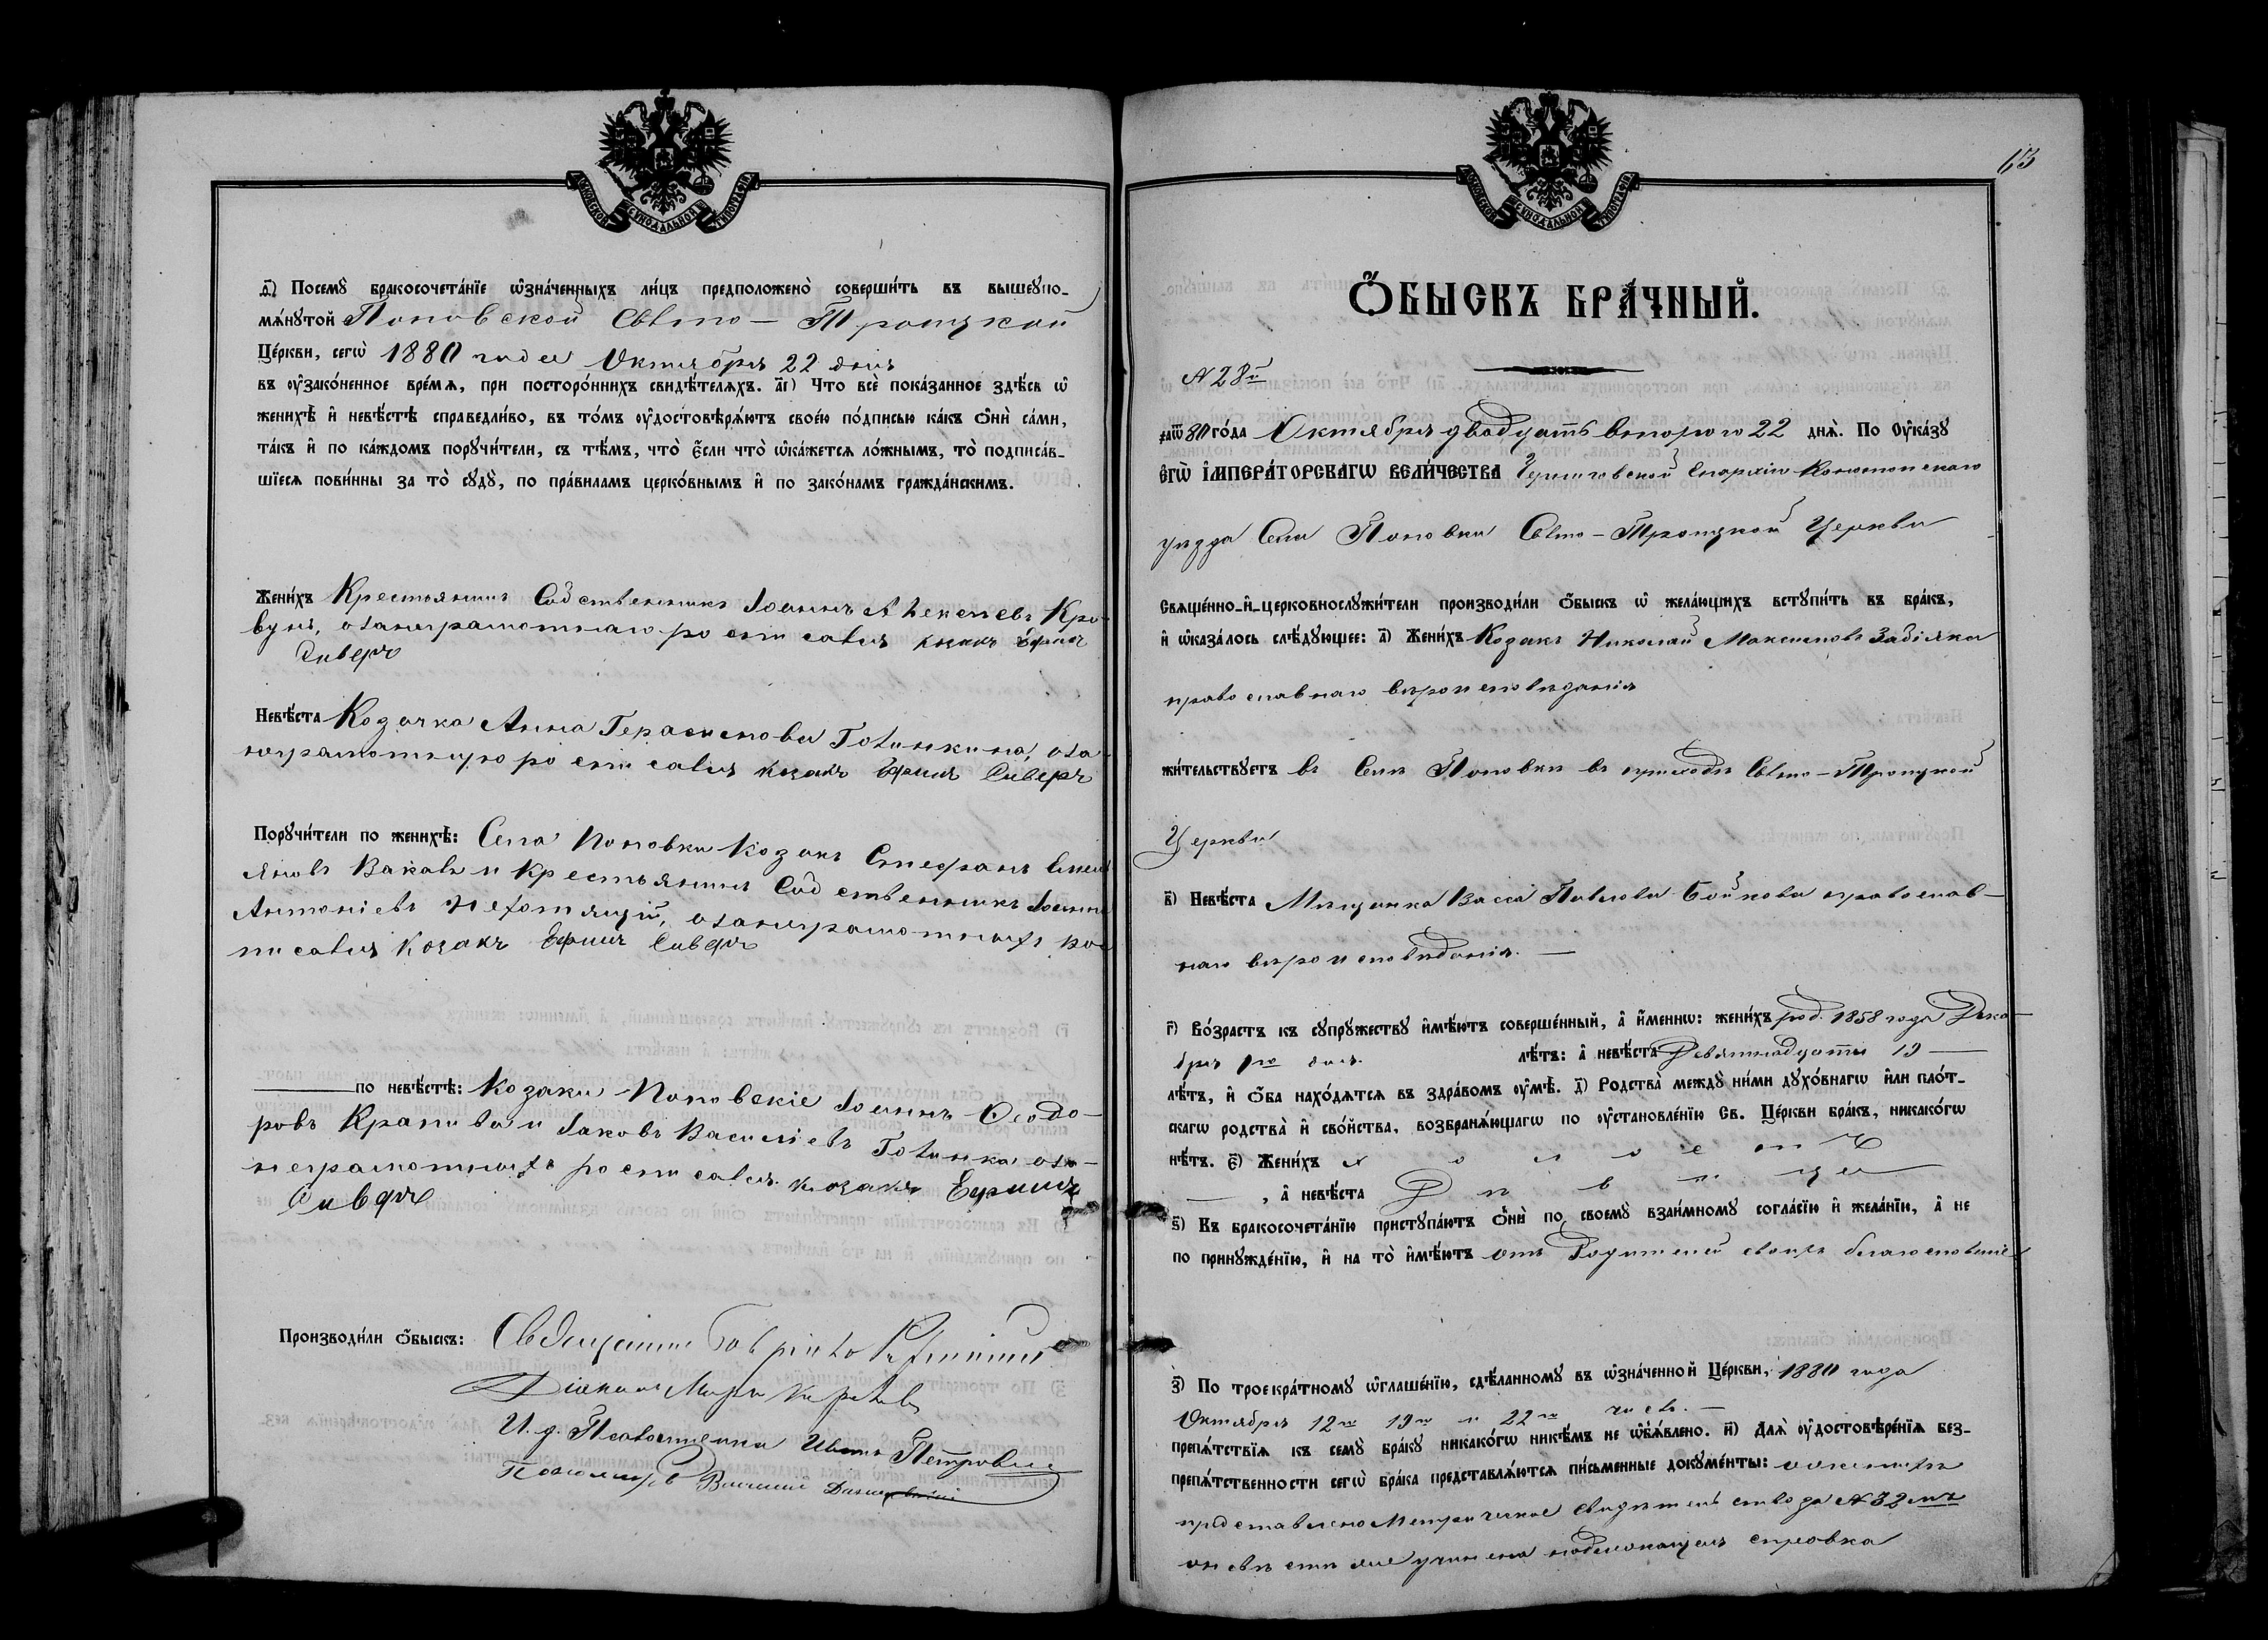 МОСКОВСКОЙ СѴНОДАЛЬНОЙ ТИПОГРАФІИ
і҃) Посемꙋ̀ бракосочета́нїе ѡ҆зна́ченныхъ ли́цъ предположено̀ соверши́ть въ вышеꙋпо-
мѧ́нꙋтой Поповской Свѣто-Троицкой
Це́ркви, сегѡ̀ 1880 года Октября 22 дня
въ ᲂу҆зако́ненное вре́мѧ, при посторо́ннихъ свидѣ́телѧхъ. а҃і) Что̀ всѐ пока́занное здѣ́сь ѡ҆
женихѣ̀ и҆ невѣ́стѣ справедли́во, въ то́мъ ᲂу҆достовѣрѧ́ютъ свое́ю по́дписью ка́къ ѻ҆нѝ са́ми,
та́къ и҆ по ка́ждомъ порꙋчи́тели, съ тѣ́мъ, что̀ є҆́сли что̀ ѡ҆ка́жетсѧ ло́жнымъ, то̀ подписа́в-
шїесѧ пови́нны за то̀ сꙋдꙋ̀, по пра́виламъ церко́внымъ и҆ по зако́намъ гражда́нскимъ.
Жени́хъ Крестьянинъ Собственникъ Іоаннъ Алексѣевъ Кро-
вунъ, за неграмотнаго росписался козакъ Ефимъ
Сиверъ
Невѣ́ста Козачка Анна Герасимова Голинкина, за
неграмотную росписался козакъ Ефимъ Сиверъ
Порꙋчи́тели по женихѣ̀: Села Поповки Козакъ Стефанъ
и Крестьянинъ Собственникъ Іоаннъ
Антоніевъ за неграмотныхъ рос
писался Козакъ Ефимъ Сиверъ
по невѣ́стѣ: Козаки Поповскіе Іоаннъ Ѳеодо-
ровъ Крапива и Іаковъ Василіевъ Голинка за
неграмотныхъ росписался козакъ Ефимъ
Сиверъ
Производи́ли ѻ҆́быскъ: Священникъ Гавріилъ
Діаконъ
И. д. Псаломщика Иванъ Петровскій
Пономарь Василій
63
МОСКОВСКОЙ СѴНОДАЛЬНОЙ ТИПОГРАФІИ
Ѻ҆́БЫСКЪ БРА́ЧНЫЙ.
N 28й
҂аѿ80 го́да Октября двадцать второго 22 днѧ̀. По Оу҆ка́зꙋ
Е҆ГѠ̀ І҆МПЕРА́ТОРСКАГѠ ВЕЛИ́ЧЕСТВА Черниговской Епархіи Конотопскаго
уѣзда Села Поповки Свѣто-Троицкой Церкви
Свѧще́нно-и҆-церковнослꙋжи́тели производи́ли ѻ҆́быскъ ѡ҆ жела́ющихъ встꙋпи́ть въ бра́къ,
и҆ ѡ҆каза́лось слѣ́дꙋющее: а҃) Жени́хъ Козакъ Николай Максимовъ Забіяка
православнаго вѣроисповѣданія
жи́тельствꙋетъ въ Селѣ Поповки въ приходѣ Свѣто-Троицкой
Церкви
в҃) Невѣ́ста Мѣщанка Васса Павлова Бойкова православ-
наго вѣроисповѣданія.
г҃) Во́зрастъ къ сꙋпрꙋ́жествꙋ и҆мѣ́ютъ соверше́нный, а҆ и҆́меннѡ: жени́хъ род. 1858 года Дека-
бря 1го дня. лѣ́тъ: а҆ невѣ́ста Девятнадцати 19
лѣ́тъ, и҆ ѻ҆́ба нахо́дѧтсѧ въ здра́вомъ ᲂу҆мѣ̀. д҃) Родства̀ междꙋ̀ ни́ми дꙋхо́внагѡ и҆лѝ пло́т-
скагѡ родства̀ и҆ сво́йства, возбранѧ́ющагѡ по ᲂу҆становле́нїю Св. Це́ркви бра́къ, никако́гѡ
нѣ́тъ. є҃) Жени́хъ холостъ
, а҆ невѣ́ста Дѣвица
ѕ҃) Къ бракосочета́нїю пристꙋпа́ютъ ѻ҆нѝ по своемꙋ̀ взаи́мномꙋ согла́сїю и҆ жела́нїю, а҆ не
по принꙋжде́нїю, и҆ на то̀ и҆мѣ́ютъ отъ Родителей своихъ благословеніе
з҃) По троекра́тномꙋ ѡ҆глаше́нїю, сдѣ́ланномꙋ въ ѡ҆зна́ченной Це́ркви, 1880 года
Октября 12го 19го и 22го числъ.
препѧ́тствїѧ къ семꙋ̀ бра́кꙋ никако́гѡ никѣ́мъ не ѡ҆б̾ѧ́влено. и҃) Длѧ̀ ᲂу҆достовѣре́нїѧ без-
препѧ́тственности сегѡ̀ бра́ка представлѧ́ютсѧ пи́сьменные докꙋме́нты: о женихѣ
представлено Метрическое свидѣтельство за N 32мъ
о невѣстѣ же учинена надлежащая справка